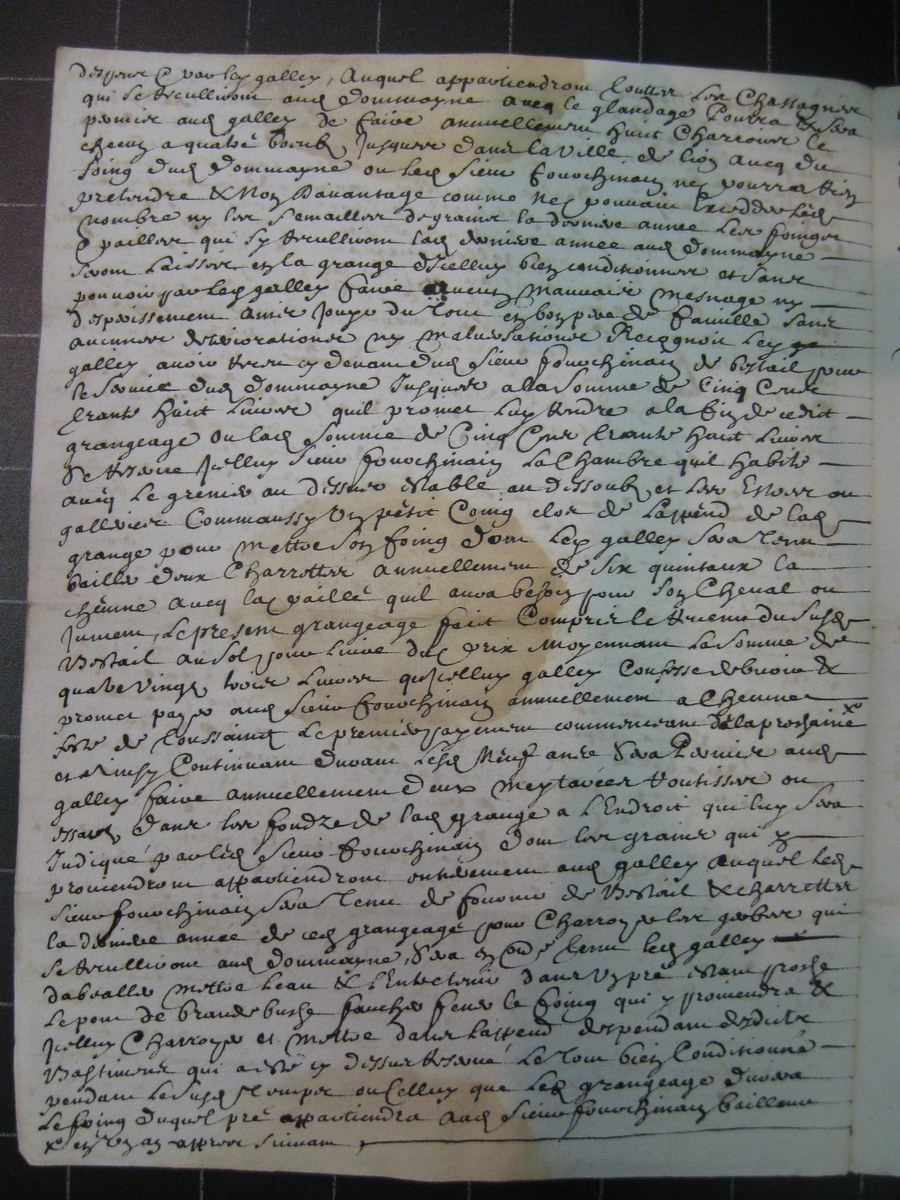 par led galley, Auquel appartiendront touttes les Chastagnes
qui se recullieront aud dommayne avecq le glandage Pourra & sera
permis aud galley de faire annuellement huict Charrois le
chacun a quatre boeufs Jusques dans la Ville de lion avecq du
foing dud dommayne ou led sieur fourchinain ne pourra rien
pretendre & Non davantage comme Ne pouvant Exceder led
nombre ny les semailles de graine la derniere annee les foings
& pailles qui sy recullieront lad derniere annee aud dommayne
seront laisses en la grange dicelluy bien conditionnes et sans
pouvoir par led galley faire aucun mauvais mesnage ny
depérissement ains Jouyr du tout en bon pere de famille sans
aucunes deteriorations ny malversations Recognoit led
galley avoir receu cy devant dud sieur fourchinain de bestail pour
le service dud dommayne Jusques a la somme de Cinq Cent
trante huict livres quil promet luy rendre a la fin de cedit
grangeage ou lad somme de Cinq Cent trante huict livres
Se reserve Jcelluy sieur fourchinain la Chambre quil habite
avecq le grenier au dessus estable au dessoubs et les
galleries Commaussy un petit Coing clos de lappend de lad
grange pour mettre son foing dont led galley sera tenu
bailler deux Charrettes annuellement de six quintaux la
chacune avecq la paille quil aura besoin pour son Cheval ou
Jument, Le present grangeage faict Compris le du susd
Bestail au sol pour livre du prix moyennant la somme de
quatre vingt trois livres qu Jcelluy galley Confesse debvoir &
promet payer aud sieur fourchinain annuellement a Chacune
feste de toussainct le premier payement commenceant de la prochaine x
et ainsy Continuant durant lesd Neuf ans Sera Permis aud
galley faire annuellement deux ou
essarts dans les fondz de lad grange a lEndroit qui luy sera
Indiqué par led sieur fourchinain dont les graines qui y
proviendront appartiendront entierement aud galley Auquel led
sieur fourchinain sera tenu de fournir de Bestail & charrettes
la derniere annee de ced grangeage pour Charroyer les gerbes qui
se recullieront aud dommayne, Sera en tenu led galley
mettre leau & lEntretenir dans un pré estant proche
le pont de brandebuche faucher fener le foing qui y proviendra &
Jcelluy Charroyer et mettre dans lappend despendant desdicts
Bastiments qui a esté cy dessus reservé Le tout bien Conditionné
pendant le susd temps ou Celluy que led grangeage durera
Le foing duquel pré appartiendra aud sieur fourchinain baillant
x en un an apres suivant